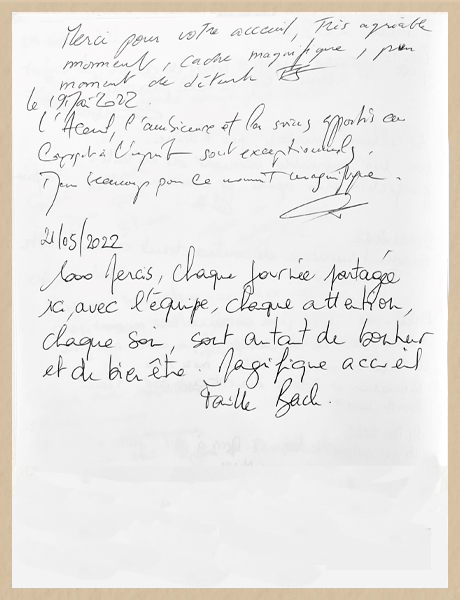 Merci pour votre acceuil, Très agréable
momment, cadre magnifique, pur
momment de détente
le 19 Mai 2022.
L'Acceuil, l'ambiance et les soins apportés au
Corps et à l'esprit sont exceptionnels,
Merci beaucoup pour ce moment magnifique.
21/05/2022
1000 Mercis, chaque journée partagée
ici, avec l'équipe, chaque attention,
chaque soin, sont autant de bonheur
et de bien être. Magifique accueil
Famille Bach.